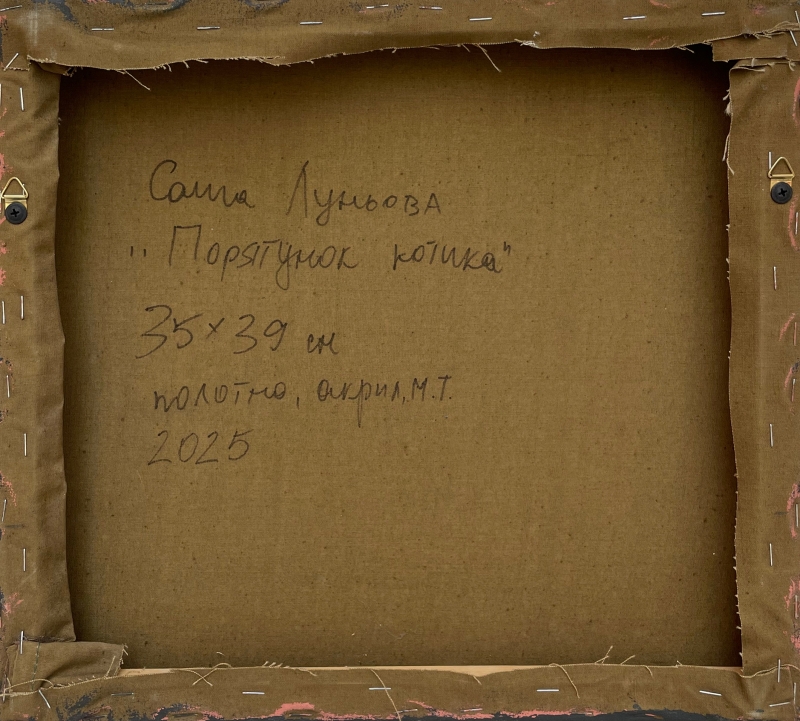 Саша Луньова
„Порятунок котика"
35×39 см
полотно, акрил, м.т.
2025